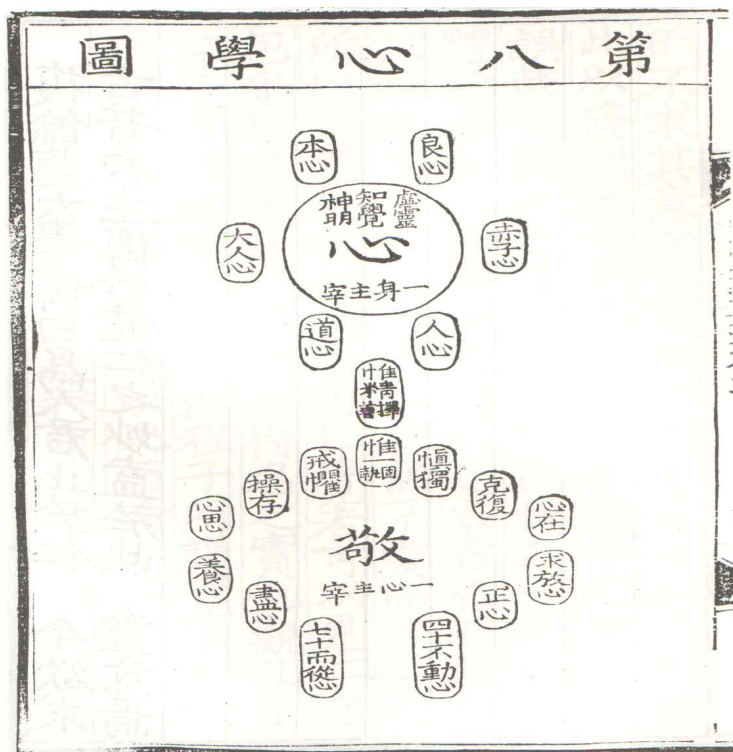 第八心學圖
良心
本心
虛靈
知覺
神明
心
一身主宰
赤子心
大人心
人心
道心
惟精
擇善
惟一
固執
愼獨
戒懼
克復
操存
心在
心思
敬
一心主宰
求放心
養心
正心
盡心
四十不動心
七十而從心